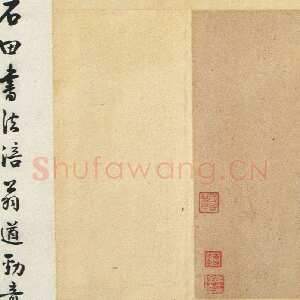 石田書法涪翁遒勁奇
Shufawang.CN